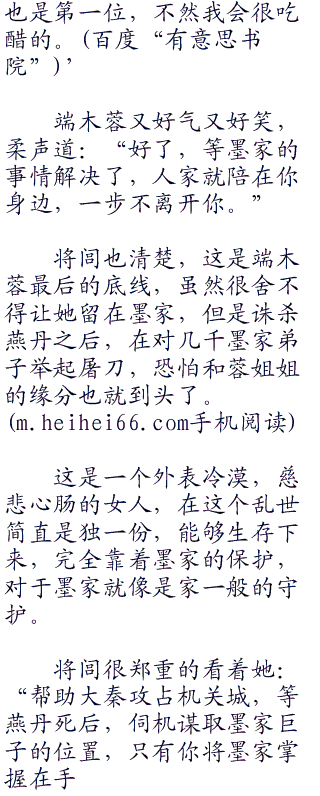 也是第一位，不然我会很吃
醋的。(百度“有意思书
院”)’
端木蓉又好气又好笑，
柔声道：“好了，等墨家的
事情解决了，人家就陪在你
身边，一步不离开你。”
将闾也清楚，这是端木
蓉最后的底线，虽然很舍不
得让她留在墨家，但是诛杀
燕丹之后，在对几千墨家弟
子举起屠刀，恐怕和蓉姐姐
的缘分也就到头了。
(m.heihei66.com手机阅读)
这是一个外表冷漠，慈
悲心肠的女人，在这个乱世
简直是独一份，能够生存下
来，完全靠着墨家的保护，
对于墨家就像是家一般的守
护。
将闾很郑重的看着她：
“帮助大秦攻占机关城，等
燕丹死后，伺机谋取墨家巨
子的位置，只有你将墨家掌
握在手